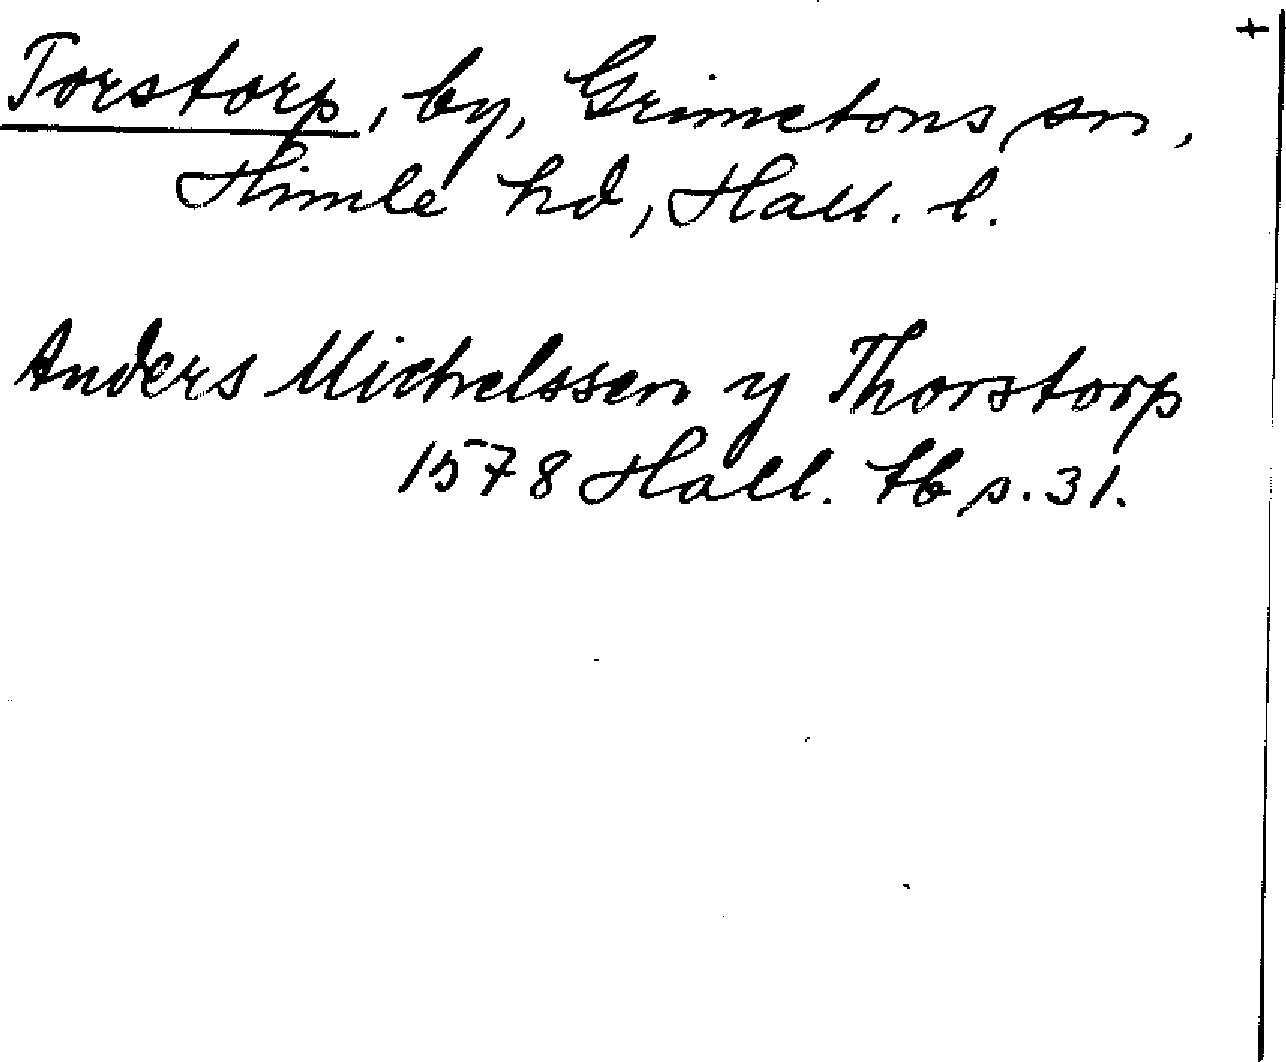 +
Torstorp, by, Grimetons sn,
Himle hd, Hall. l.
Anders Michelssen y Thorstorp
1578 Hall. tb s. 31.